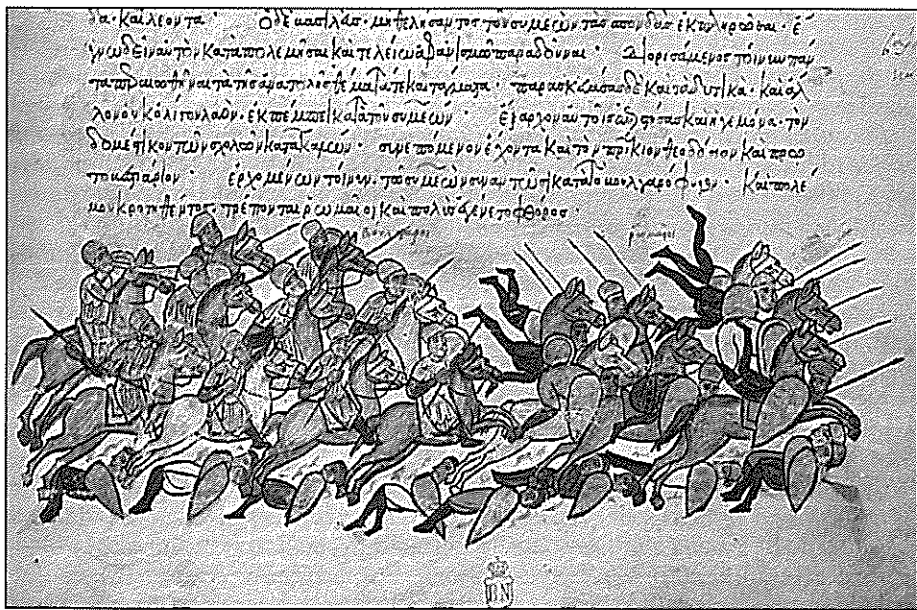 δα· καὶ λέοντα· Ὁ δὲ βασιλεὺς· μὴ θελήσαντος τοῦ συμεὼν τὰς σπονδὰς ἐκπληρῶσαι· ἔ
γνω δεῖν αὐτὸν καταπολεμῆσαι καὶ τελείω ἀφανισμῶ παραδοῦναι· Διορισάμενος τοίνυν πάν
τα τὰ τῆς ἀνατολῆς θέματά τε καὶ τάγματα· παρασκευάσας δὲ καὶ τὰ δυτικά· καὶ ἄλ
λον οὐκ ὀλίγον λαὸν· ἐκπέμπει κατὰ τοῦ συμεών· καὶ ἡγεμόνα· τὸν
δομέστικον τῶν σχολῶν· συνεπόμενον ἔχοντα καὶ τὸν πρίκιον θεοδόσιον καὶ πρω
ἐρχομένων τοίνυν· τῶ συμεὼν συναντῶσι κατὰ τὸ βουλγαρόφυγον· καὶ πολέ
μου κροτηθέντος· τρέπονται ῥωμαῖοι καὶ πολὺς ἐγένετο φθόρος·
βουλγαροι ρωμαιοι
BN